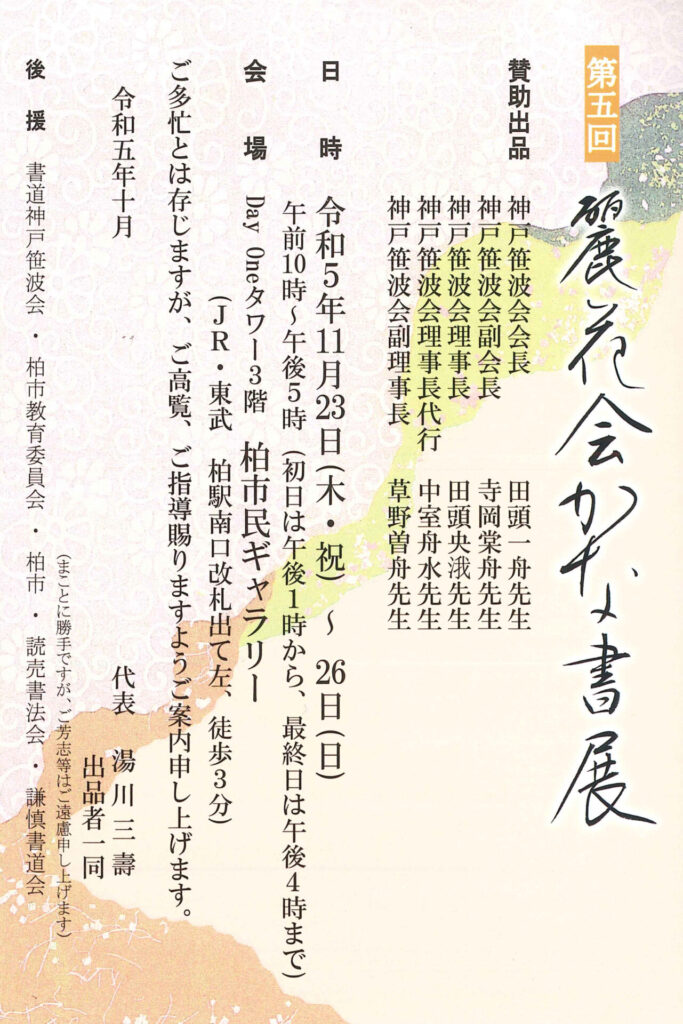 第五回
麗花会かな書展
賛助出品
神戸笹波会会長 田頭一舟先生
神戸笹波会副会長 寺岡棠舟先生
神戸笹波会理事長 田頭央渽先生
神戸笹波会理事長代行 中室舟水先生
神戸笹波会副理事長 草野曽舟先生
日時 令和5年11月23日(木・祝)〜 26日(日)
午前10時〜午後5時(初日は午後1時から、最終日は午後4時まで)
会場 Day Oneタワー3階 柏市民ギャラリー
(JR・東武 柏駅南口改札出て左、徒歩3分)
ご多忙とは存じますが、ご高覧、ご指導賜りますようご案内申し上げます。
令和五年十月
代表 湯川三壽
出品者一同
(まことに勝手ですが、ご芳志等はご遠慮申し上げます)
後援 書道神戸笹波会・柏市教育委員会・柏市・読売書法会・謙慎書道会